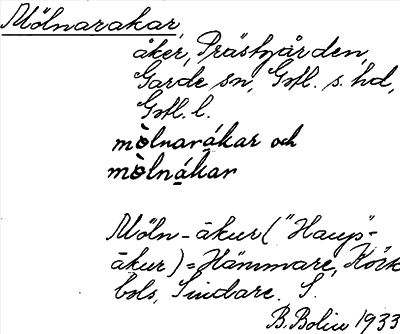 Mölnarakar,
åker, Prästgården,
Garde sn, Gotl. s. hd,
Gotl. l.
mòlnarákar och
mòlnákar
Möln-ākur ("Haug"-
ākur) = Hämmare,
bols, Sindare. S.
B. Bolin 1933